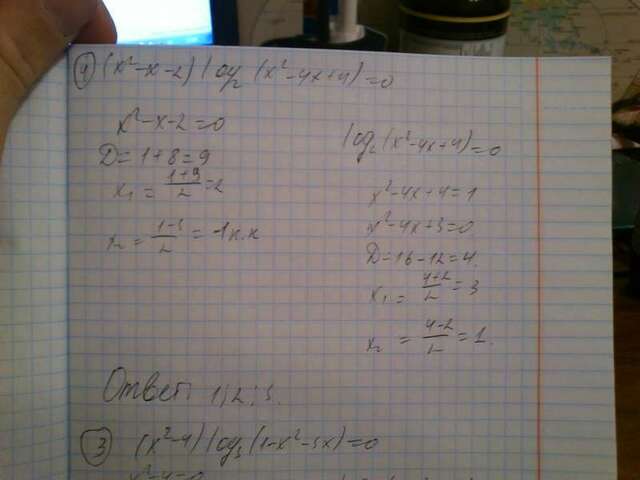 ④ (x²-x-2) log₂ (x²-4x+4)=0
x²-x-2=0
D=1+8=9
x₁ = (1+3)/2 =2
x₂ = (1-3)/2 = -1 п.к
log₂(x²-4x+4)=0
x²-4x+4=1
x²-4x+3=0
D=16-12=4
x₁ = (4+2)/2 =3
x₂ = (4-2)/2 =1.
Ответ: 1; 2; 3.
③ (x²-4) log₃ (1-x²-3x)=0
x²-4=0